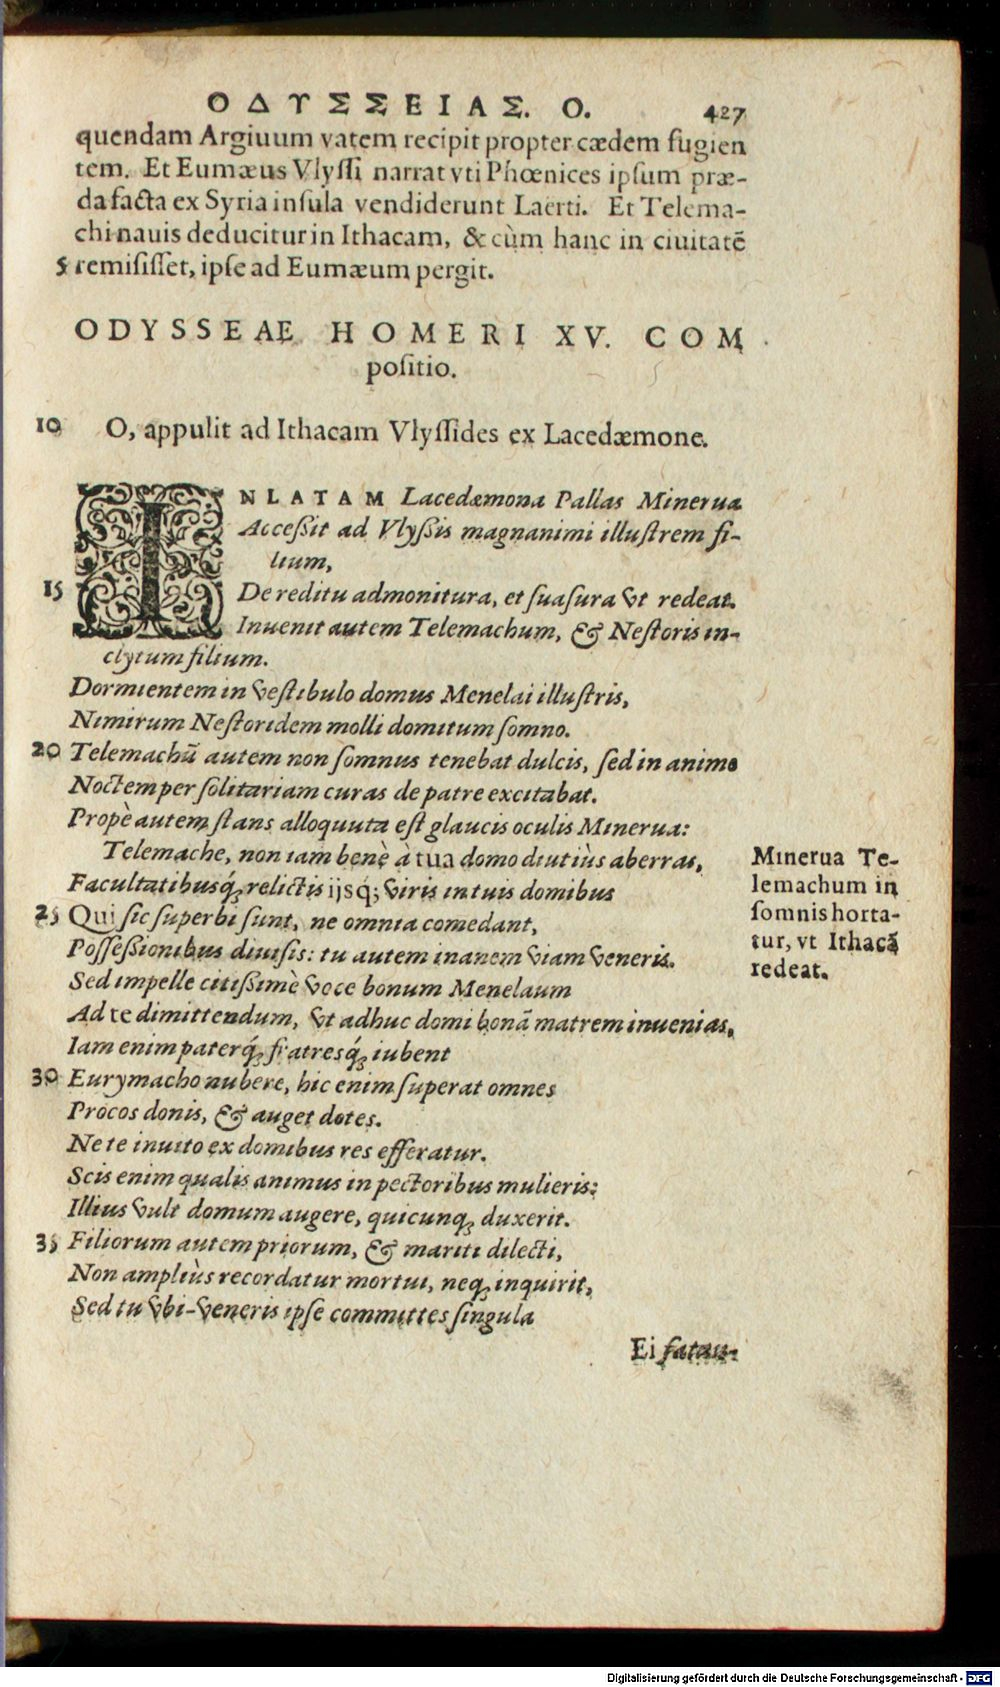 ΟΔΥΣΣΕΙΑΣ. Ο. 427
quendam Argiuum vatem recipit propter cædem fugien
tem. Et Eumæus Vlyſſi narrat vti Phœnices ipſum præ-
da facta ex Syria inſula vendiderunt Laërti. Et Telema-
chi nauis deducitur in Ithacam, & cùm hanc in ciuitatē
5 remiſiſſet, ipſe ad Eumæum pergit.
ODYSSEAE HOMERI XV. COM
poſitio.
10 O, appulit ad Ithacam Vlyſſides ex Lacedæmone.
INLATAM Lacedæmona Pallas Minerua
Acceßit ad Vlyßis magnanimi illuſtrem fi-
lium,
15 De reditu admonitura, et ſuaſura vt redeat.
Inuenit autem Telemachum, & Neſtoris in-
clytum filium.
Dormientem in veſtibulo domus Menelai illuſtris,
Nimirum Neſtoridem molli domitum ſomno.
20 Telemachū autem non ſomnus tenebat dulcis, ſed in animo
Noctem per ſolitariam curas de patre excitabat.
Propè autem ſtans alloquuta eſt glaucis oculis Minerua:
Telemache, non iam benè à tua domo diutiùs aberras,
Facultatibusq́; relictis ijsq́; viris in tuis domibus
25 Qui ſic ſuperbi ſunt, ne omnia comedant,
Poſſeßionibus diuiſis: tu autem inanem viam veneris.
Sed impelle citißimè voce bonum Menelaum
Ad te dimittendum, vt adhuc domi bonā matrem inuenias,
Iam enim paterq́; fratresq́; iubent
30 Eurymacho nubere, hic enim ſuperat omnes
Procos donis, & auget dotes.
Ne te inuito ex domibus res efferatur.
Scis enim qualis animus in pectoribus mulieris:
Illius vult domum augere, quicunq; duxerit.
35 Filiorum autem priorum, & mariti dilecti,
Non ampliùs recordatur mortui, neq; inquirit,
Sed tu vbi-veneris ipſe committes ſingula
Ei
Minerua Te-
lemachum in
ſomnis horta-
tur, vt Ithacā
redeat.
Digitalisierung gefördert durch die Deutsche Forschungsgemeinschaft - DFG